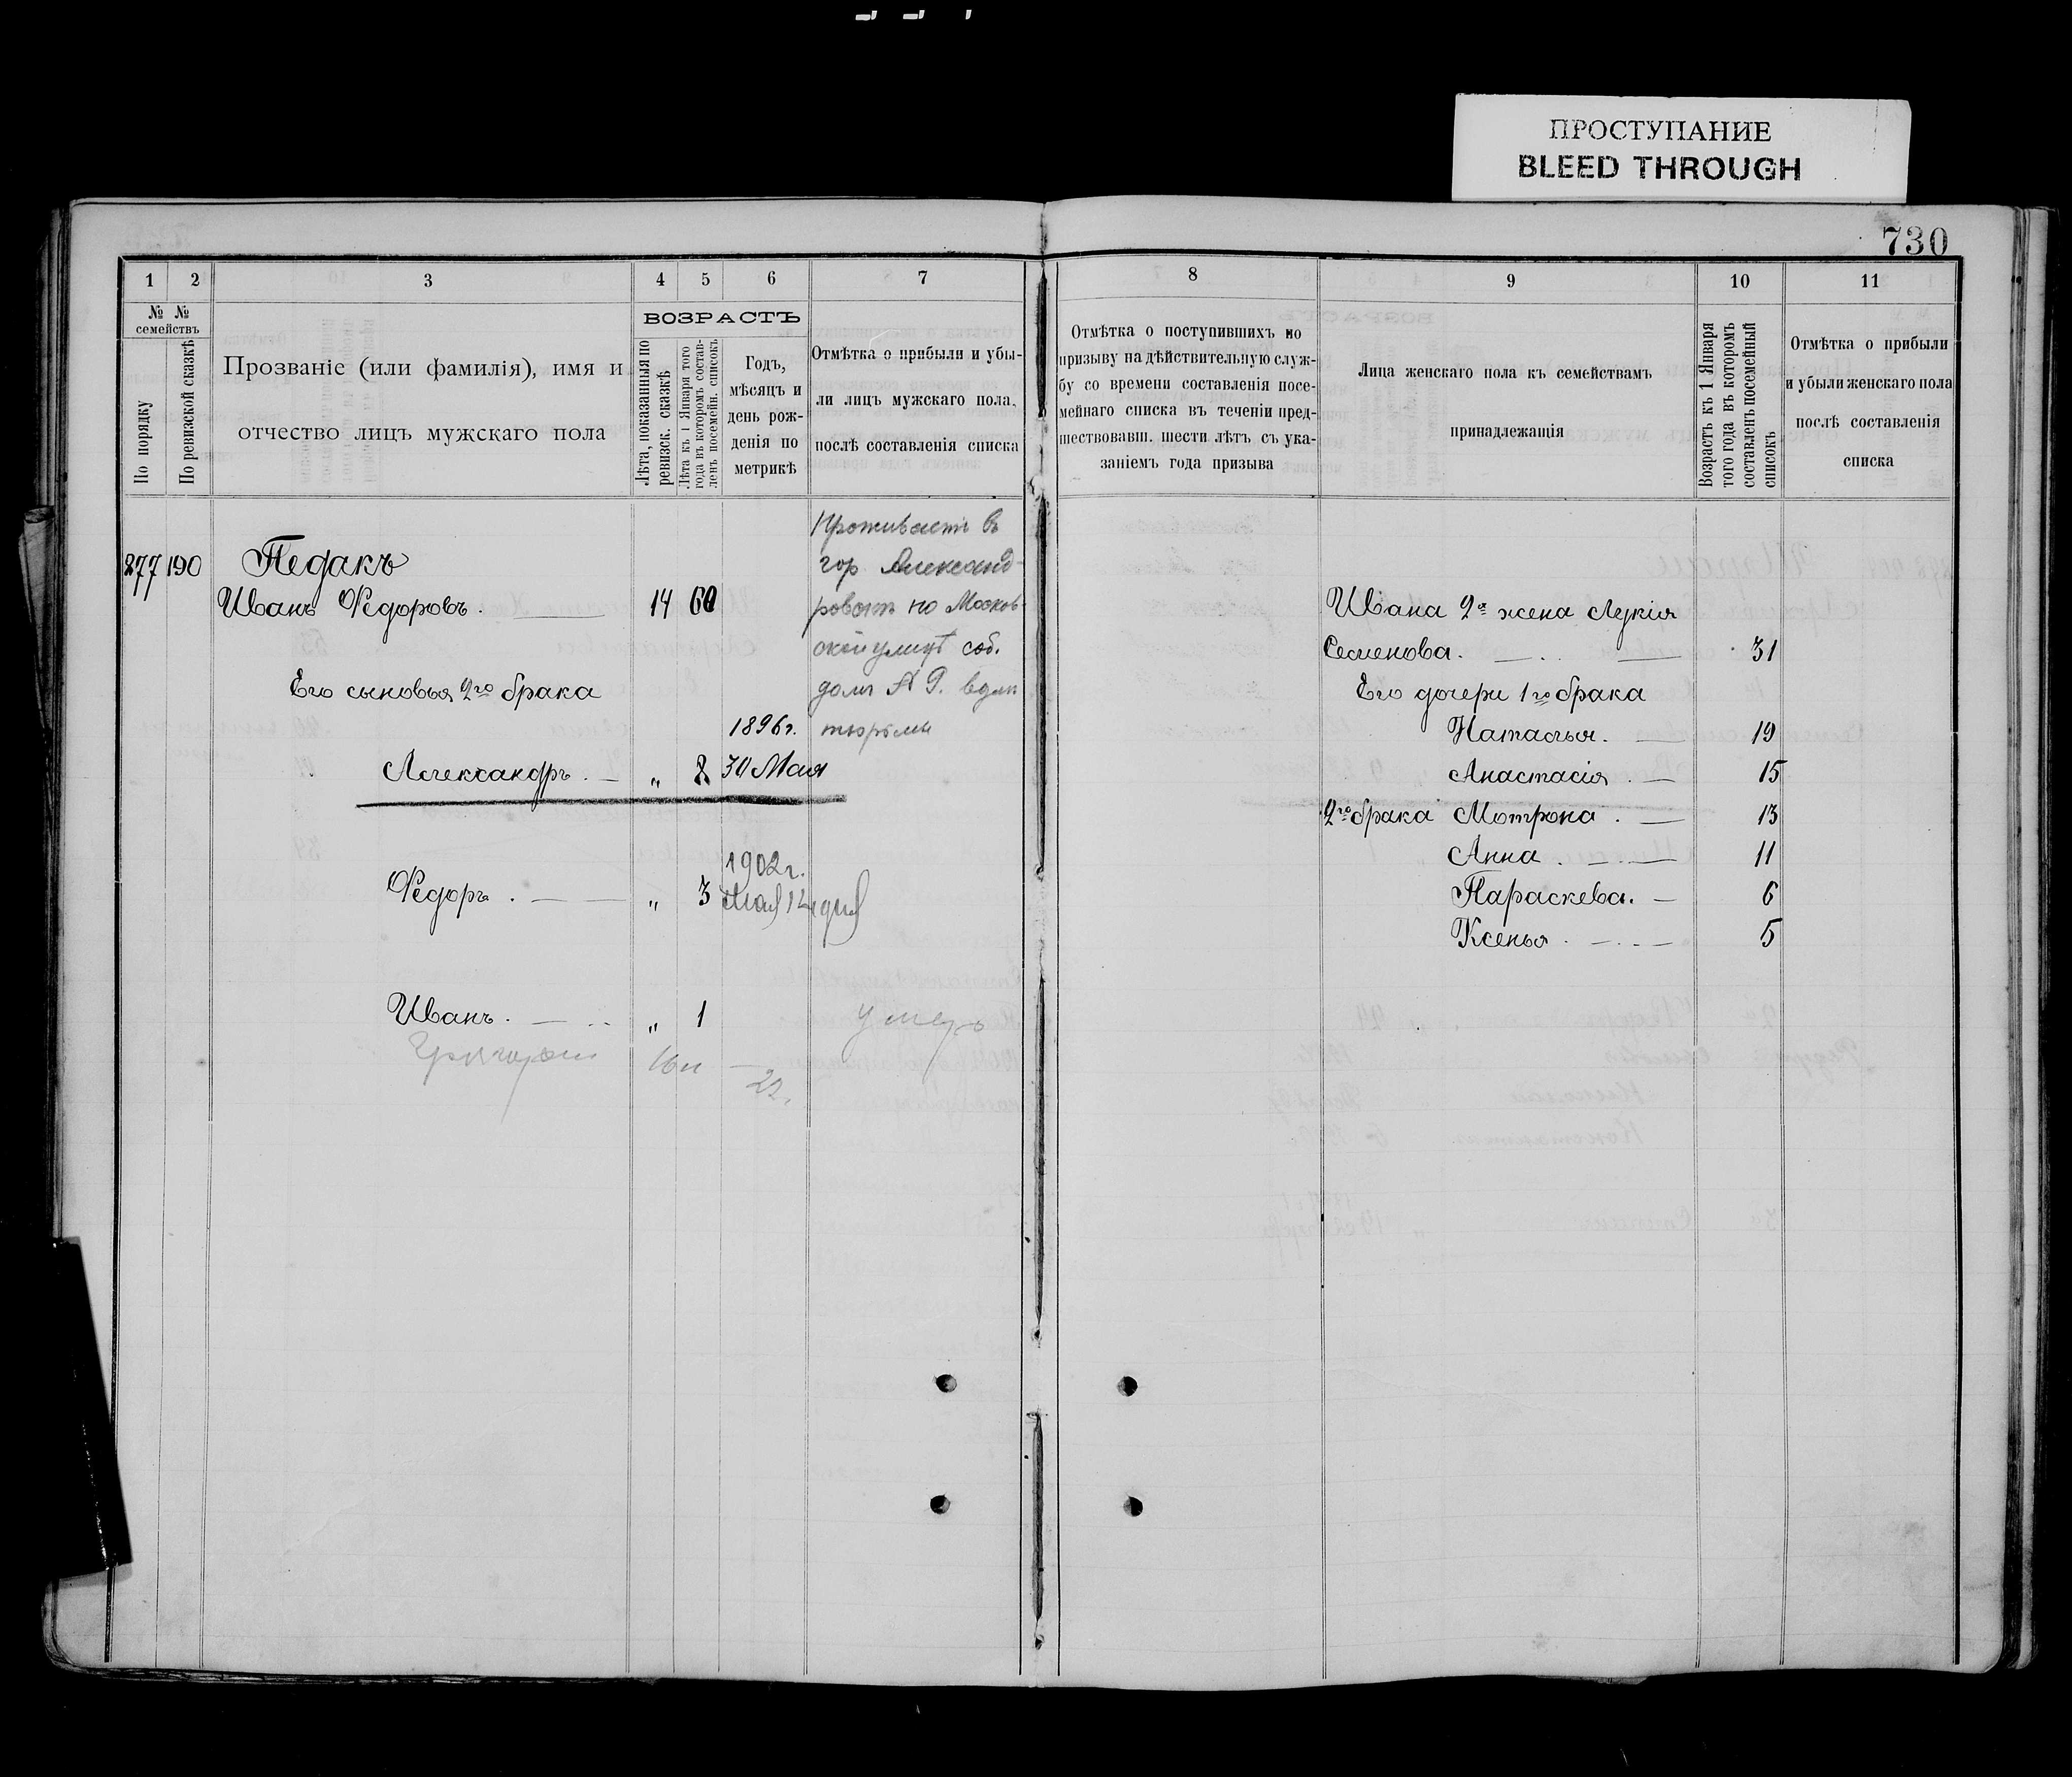 ПРОСТУПАНИЕ
BLEED THROUGH
730
1 2 3 4 5 6 7
№ № семействъ
По порядку
По ревизской сказкѣ
Прозваніе (или фамилія), имя и
отчество лицъ мужскаго пола
ВОЗРАСТЪ
Лѣта, показанныя по
ревизск. сказкѣ
Лѣта къ 1 Января того
года въ которомъ состав-
ленъ посемейн. списокъ
Годъ,
мѣсяцъ и
день рож-
денія по
метрикѣ
Отмѣтка о прибыли и убы-
ли лицъ мужскаго пола,
послѣ составленія списка
877 190 Педакъ
Иванъ Ѳедоровъ. 14 60
Проживаетъ въ
гор Александ-
ровскѣ по Москов
ской улицѣ соб.
Его сыновья 2го брака
1896г.
Александръ. " 8 30 Мая
1902г.
Ѳедоръ. " 3 Мая 14 дня
Иванъ. " 1 умеръ
Григорій 16 п
22.
8 9 10 11
Отмѣтка о поступившихъ по
призыву на дѣйствительную служ-
бу со времени составленія посе-
мейнаго списка въ теченіи пред-
шествовавш. шести лѣтъ съ ука-
заніемъ года призыва
Лица женскаго пола къ семействамъ
принадлежащія
Возрастъ къ 1 Января
того года въ которомъ
составленъ посемейный
списокъ
Отмѣтка о прибыли
и убыли женскаго пола
послѣ составленія
списка
Ивана 2я жена Лукія
Семенова. 31
Его дочери 1го брака
Наталья. 19
Анастасія. 15
2го брака Мотрона. 13
Анна. 11
Параскева. 6
Ксенья. 5